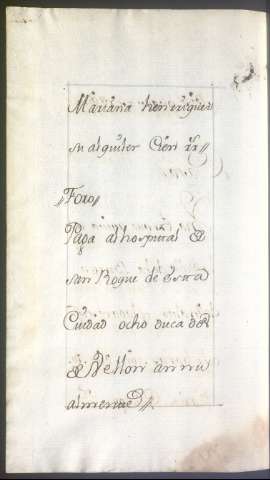 Mariana henrriques
su alquiler Cien rrs//
//Foro//
Paga al hospital de
san Roque de estta
Ciudad ocho duca dos
de Vellon annu
almente//